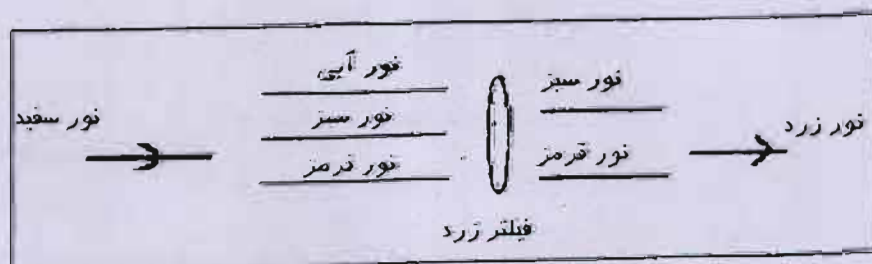 نور سفید
نور آبی
نور سبز
نور قرمز
فیلتر زرد
نور سبز
نور قرمز
نور زرد